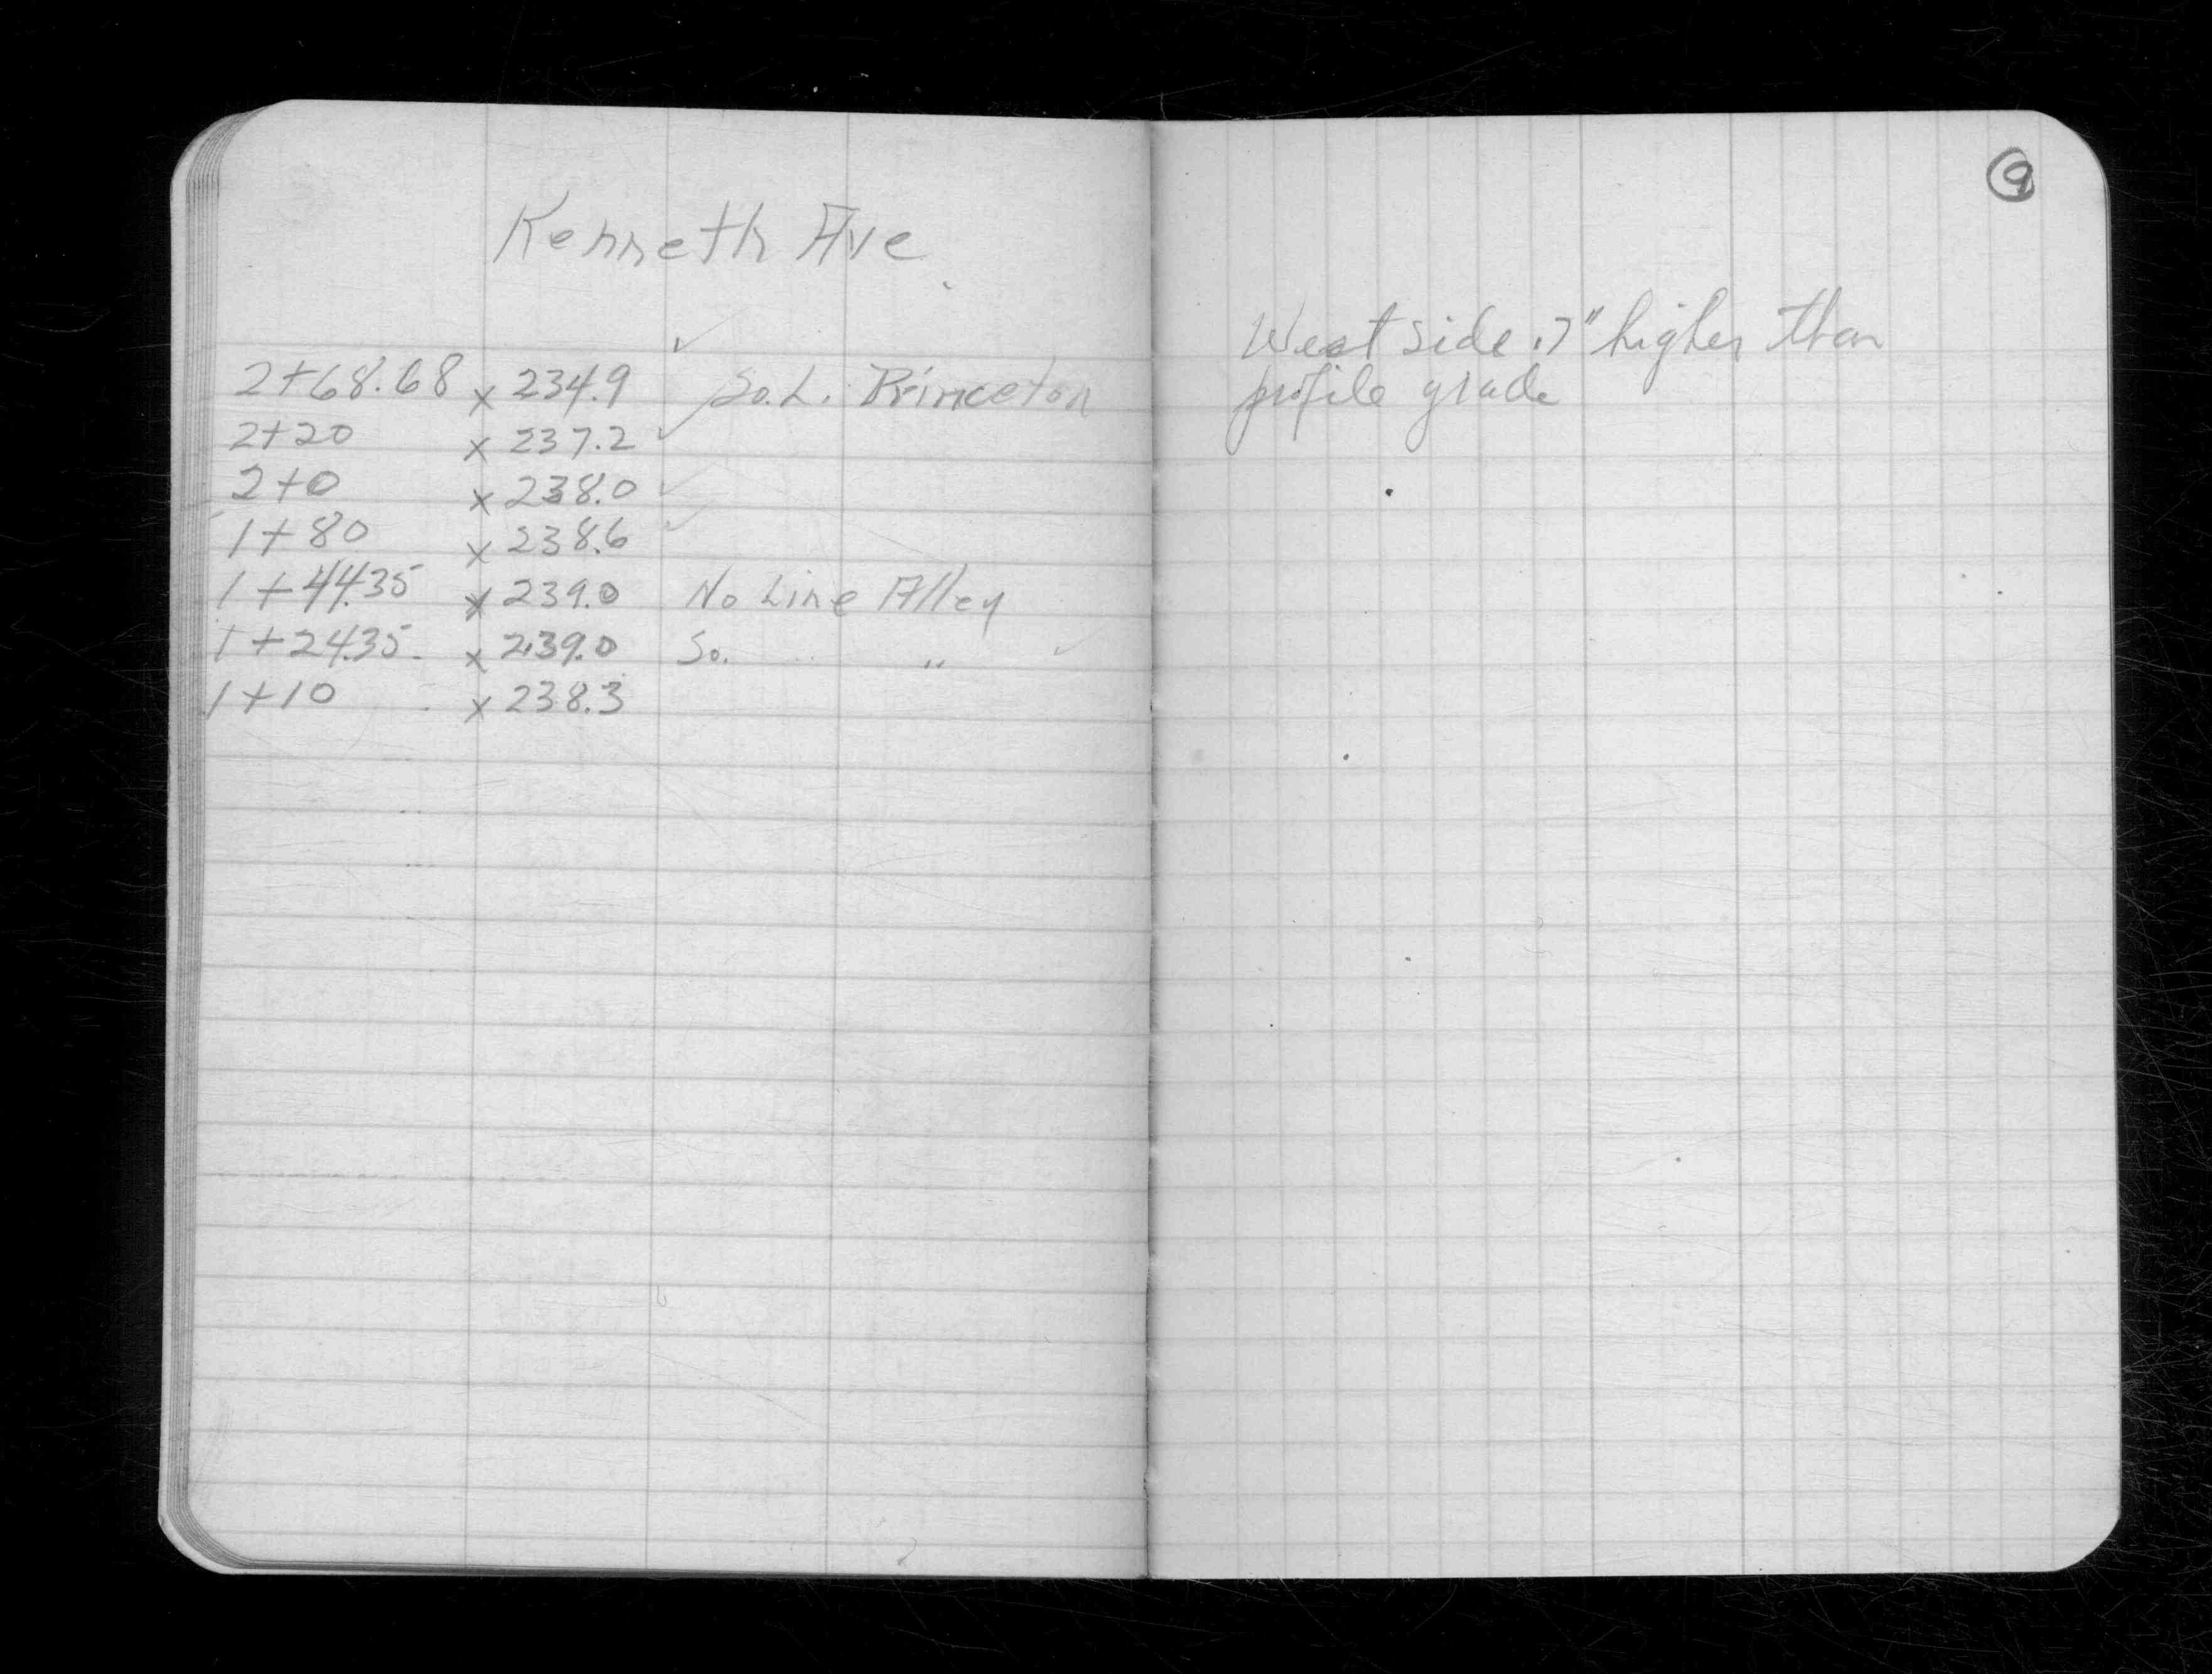 Kenneth Ave
2+68.68 x 234.9 ✓ So. L. Princeton
2+20 x 237.2 ✓
2+0 x 238.0 ✓
1+80 x 238.6 ✓
1+44.35 x 239.0 No Line Alley
1+24.35 x 239.0 So. " "
1+10 x 238.3
9
West side .7" higher than
profile grade